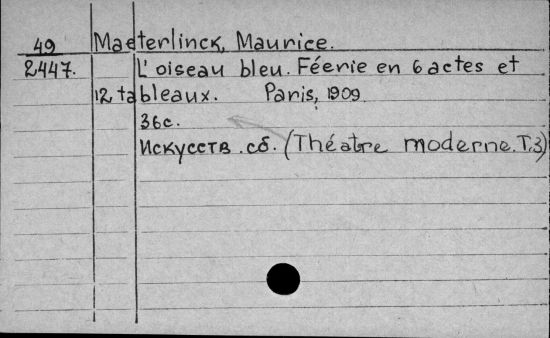 49 Maeterlinck, Maurice.
2447. L'oiseau bleu. Féerie en 6 actes et
12 tableaux. Paris, 1909.
36с.
Искусств. сб. (Théatre moderne. T.3)